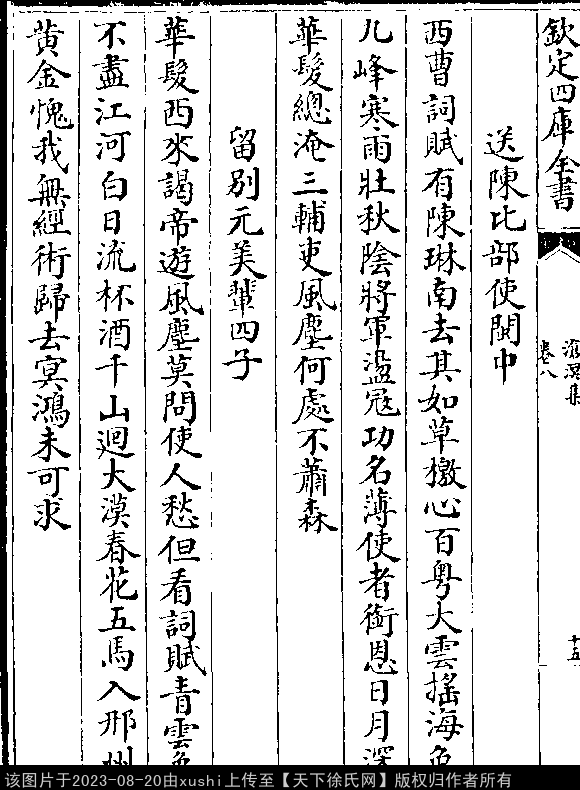 欽定四庫全書
滄溟集
卷八
十五
送陳比部使閩中
西曹詞賦有陳琳南去其如草檄心百粤大雲搖海色
九峰寒雨壯秋陰將軍盜冦功名薄使者銜恩日月深
華髮總淹三輔吏風塵何處不蕭森
留别元美輩四子
華髮西來謁帝遊風塵莫問使人愁但看詞賦青雲色
不盡江河白日流杯酒千山迴大漠春花五馬入邢州
黄金愧我無經術歸去冥鴻未可求
该图片于2023-08-20由xushi上传至【天下徐氏网】版权归作者所有